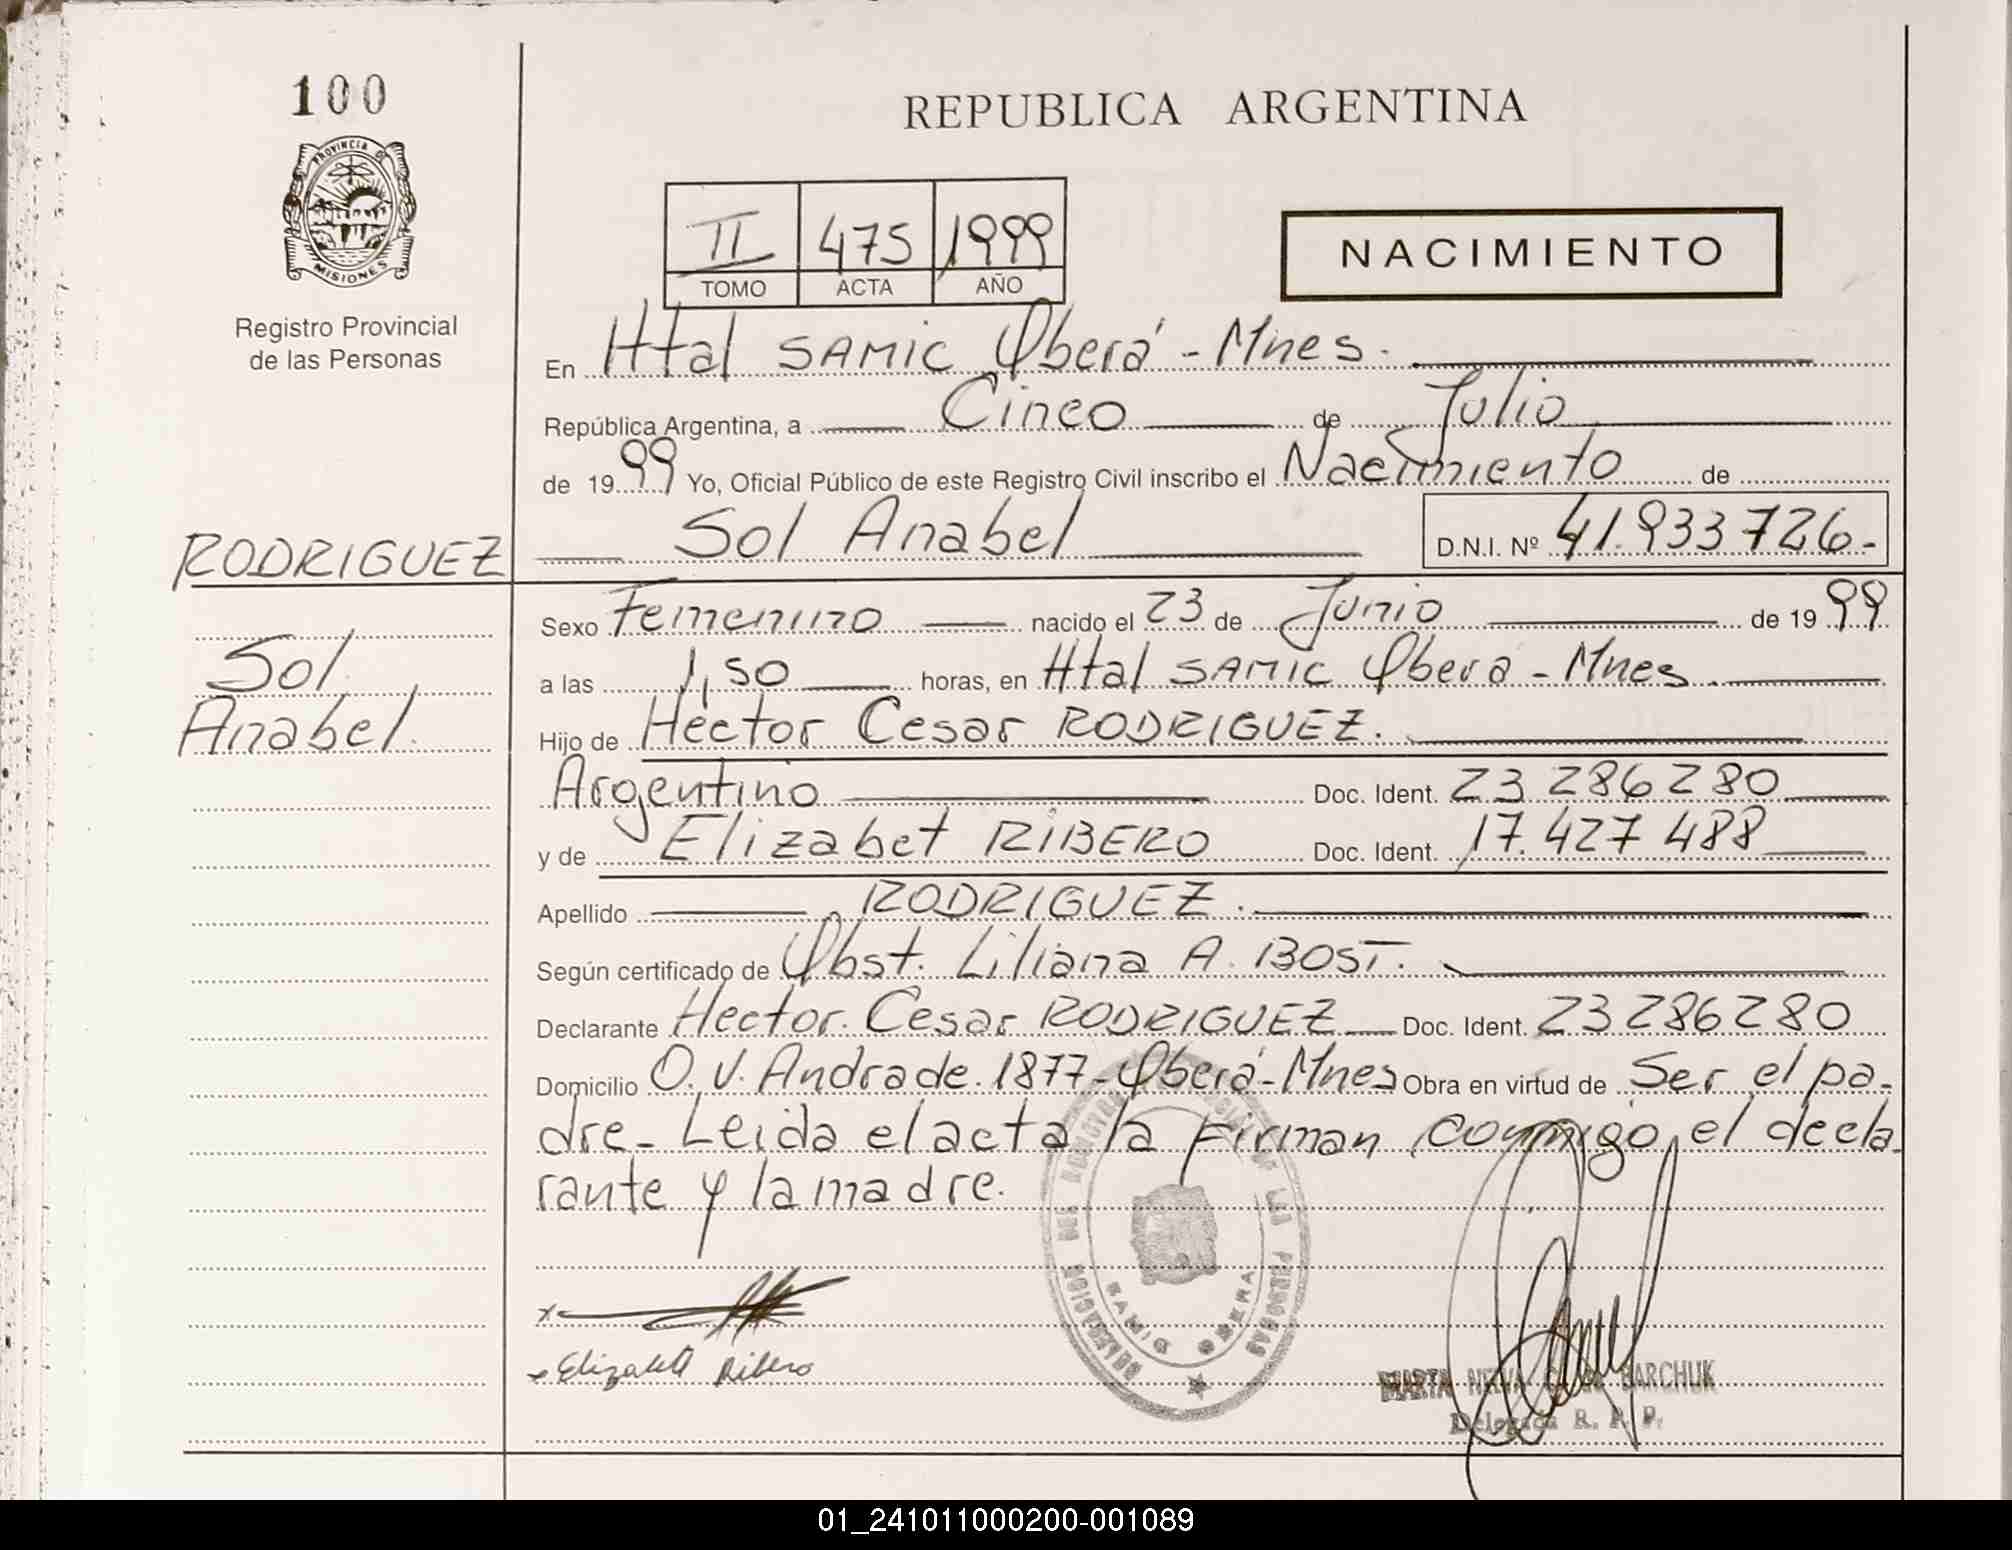 100
PROVINCIA DE
MISIONES
Registro Provincial
de las Personas
RODRIGUEZ
Sol
Anabel.
REPUBLICA ARGENTINA
II 475 1999
TOMO ACTA AÑO
NACIMIENTO
En Htal SAMIC Oberá - Mnes.
República Argentina, a Cinco de Julio
de 1999 Yo, Oficial Público de este Registro Civil inscribo el Nacimiento de
Sol Anabel D.N.I. Nº 41.933726.-
Sexo Femenino nacido el 23 de Junio de 1999
a las 1,50 horas, en Htal SAMIC Oberá - Mnes.
Hijo de Héctor Cesar RODRIGUEZ.
Argentino Doc. Ident. 23 286 280
y de Elizabet RIBERO Doc. Ident. 17.427 488
Apellido RODRIGUEZ.
Según certificado de Obst. Liliana A. BOST.
Declarante Hector Cesar RODRIGUEZ Doc. Ident. 23 286 280
Domicilio O. V. Andrade 1877-Oberá-Mnes Obra en virtud de Ser el pa-
dre- Leida el acta la firman conmigo el decla
rante y la madre.
DELEGACION DEL DE LAS PERSONAS
OBERA
x Elizabet Ribero
MARTA BARCHUK
Delegada R. P. P.
01_241011000200-001089